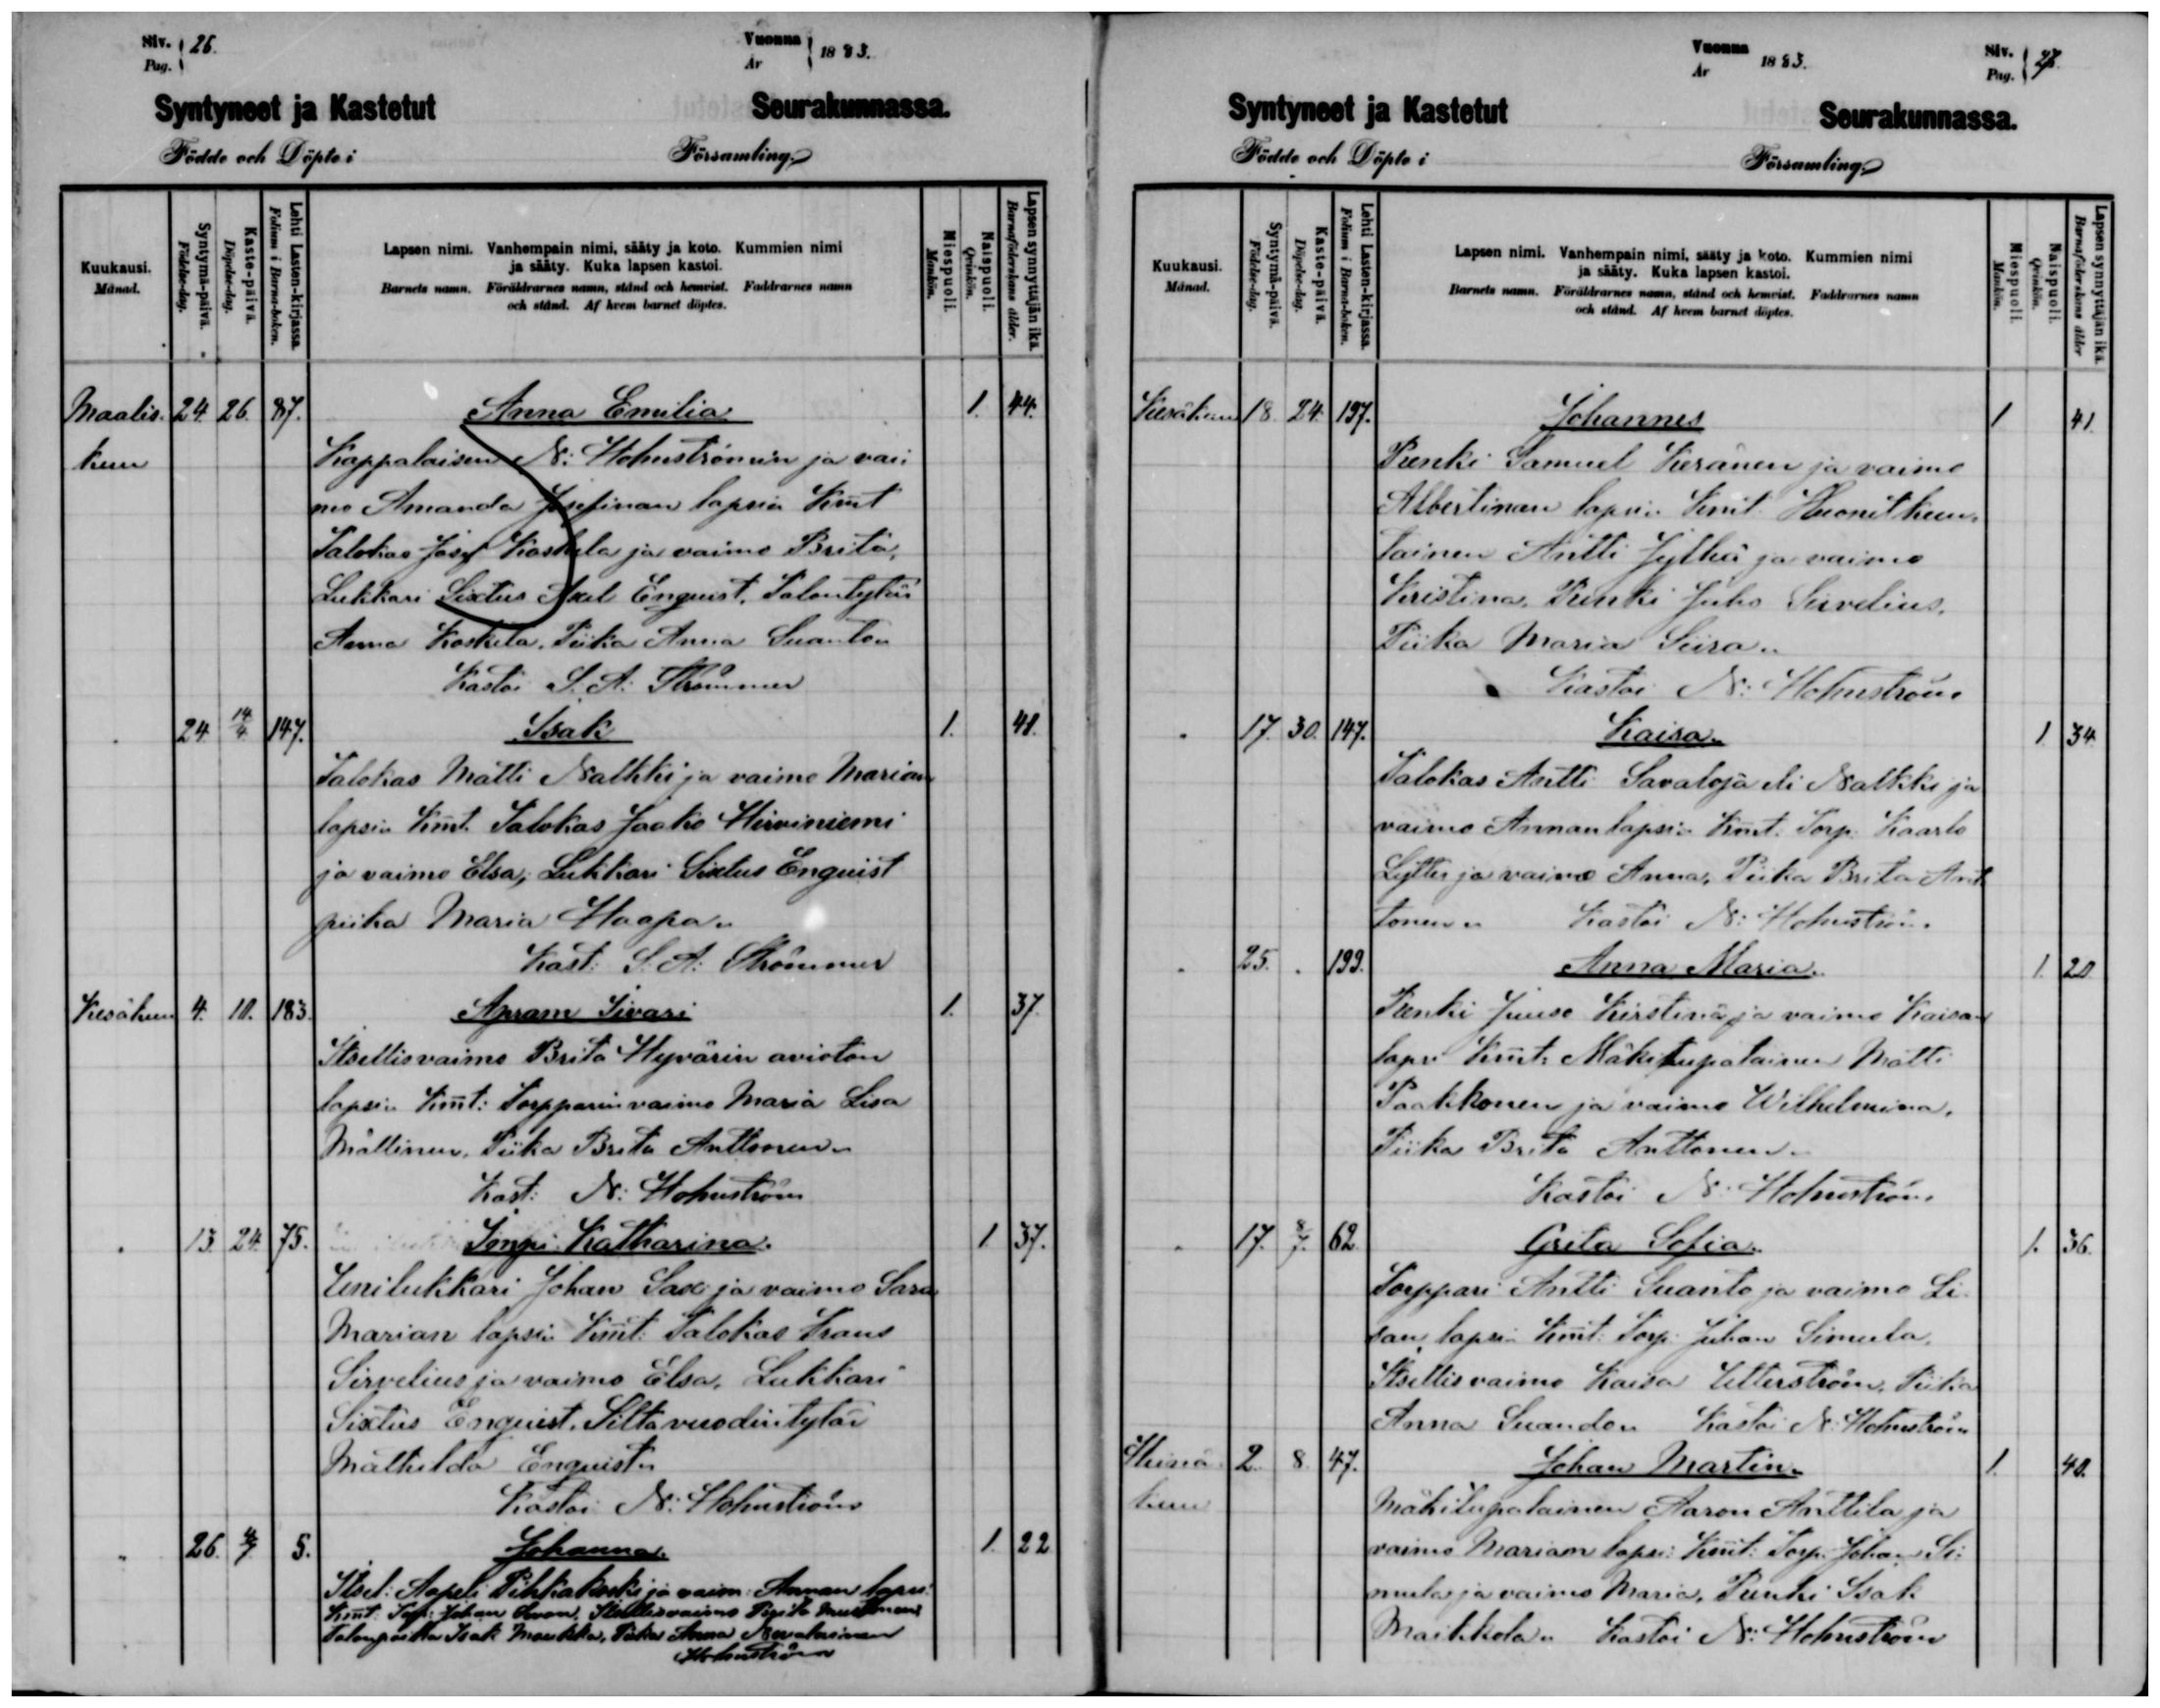 Siv. Pag. 26.
Vuonna År 1883.
Syntyneet ja Kastetut Seurakunnassa.
Födde och Döpte i Församling.
Kuukausi. Månad.
Syntymä-päivä. Födelse-dag.
Kaste-päivä. Döpelse-dag.
Lehti Lasten-kirjassa. Folium i Barna-boken.
Lapsen nimi. Vanhempain nimi, sääty ja koto. Kummien nimi
ja sääty. Kuka lapsen kastoi.
Barnets namn. Föräldrarnes namn, stånd och hemvist. Faddrarnes namn
och stånd. Af hvem barnet döptes.
Miespuoli. Mankön.
Naispuoli. Qvinkön.
Lapsen synnyttäjän ikä. Barnaföderskans ålder.
Maalis- 24. 26. 87. Anna Emilia 1. 44.
kuu Kappalaisen N: Hohnströmin ja vai-
mo Amanda Josefinan lapsi Kmt
Talokas Josef Koskela ja vaimo Brita,
Lukkari Sixtus Axel Enquist, Talontytär
Anna Koskela, Piika Anna Suanto
Kastoi S. A. Strömmer
" 24. 14/4. 147. Isak 1. 41.
Talokas Matti Nalkki ja vaimo Marian
lapsi Kmt. Talokas Jaako Hirviniemi
ja vaimo Elsa, Lukkari Sixtus Enquist
piika Maria Haapa
Kast: S. A: Strömmer
Kesäkuu 4. 10. 183. Apram Iivari 1. 37.
Itsellisvaimo Brita Hyvärin avioton
lapsi Kmt: Torpparinvaimo Maria Lisa
Mällinen, Piika Brita Anttonen
Kast: N: Hohnström
" 13. 24. 75. Impi Katharina. 1. 37.
Unilukkari Johan Sax ja vaimo Sara
Marian lapsi Kmt: Talokas Kraus
Sirvelius ja vaimo Elsa, Lukkari
Sixtus Enquist, Siltavuodintytär
Mathilda Enquist
Kastoi N: Hohnström
" 26. 4/7 5. Johanna. 1. 22
Itsel: Aapeli Pihkakoski ja vaim: Annan lapsi
Kmt: Torp: Johan Itsellisvaimo
Talonpoika Isak Piika Anna
Hohnström
Vuonna År 1883.
Siv. Pag. 27.
Syntyneet ja Kastetut Seurakunnassa.
Födde och Döpte i Församling.
Kuukausi. Månad.
Syntymä-päivä. Födelse-dag.
Kaste-päivä. Döpelse-dag.
Lehti Lasten-kirjassa. Folium i Barna-boken.
Lapsen nimi. Vanhempain nimi, sääty ja koto. Kummien nimi
ja sääty. Kuka lapsen kastoi.
Barnets namn. Föräldrarnes namn, stånd och hemvist. Faddrarnes namn
och stånd. Af hvem barnet döptes.
Miespuoli. Mankön.
Naispuoli. Qvinkön.
Lapsen synnyttäjän ikä. Barnaföderskans ålder
Kesäkuu 18. 24. 197. Johannes 1 41.
Renki Samuel Keränen ja vaimo
Albertinan lapsi Kmt. Huonekun-
tainen Antti Jylhä ja vaimo
Kristina, Renki Juho Sirvelius,
Piika Maria Siira
Kastoi N: Hohnström
" 17. 30. 147. Kaisa. 1. 34.
Talokas Antti Savaloja eli Nalkki ja
vaimo Annan lapsi Kmt. Torp. Kaarlo
Lytter ja vaimo Anna, Piika Brita Ant-
tonen Kastoi N: Hohnström.
" 25. " 199. Anna Maria. 1. 20
Renki Juuso Kirstinä ja vaimo Kaisan
lapsi Kmt: Mäkitupalainen Matti
Paakkonen ja vaimo Wilhelmina,
Piika Brita Anttonen
Kastoi N: Hohnström.
" 17. 8/7. 62. Greta Sofia. 1. 36.
Torppari Antti Suanto ja vaimo Li-
san lapsi Kmt: Torp: Juhan Simula,
Itsellisvaimo Kaisa Utterström, Piika
Anna Suando Kastoi N: Hohnström
Heinä- 2. 8. 47. Johan Martin. 1. 40.
kuu Mäkitupalainen Aaron Anttila ja
vaimo Marian lapsi: Kmt: Torp: Johan Si-
mula ja vaimo Maria, Renki Isak
Maikkola Kastoi N: Hohnström